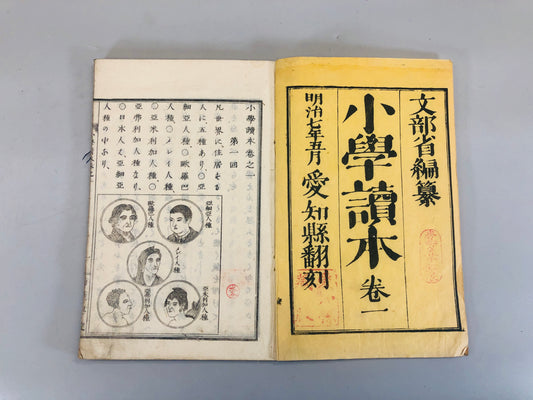 文部省編纂
小學讀本 卷一
明治七年五月 愛知縣翻刻
小學讀本卷之一
第一回
凡世界に住居する
人に五種あり○亞
細亞人種○歐羅巴
人種○メレイ人種
○亞米利加人種○
亞弗利加人種なり
○日本人は亞細亞
人種の中なり
亞細亞人種
歐羅巴人種
メレイ人種
亞米利加人種
亞弗利加人種